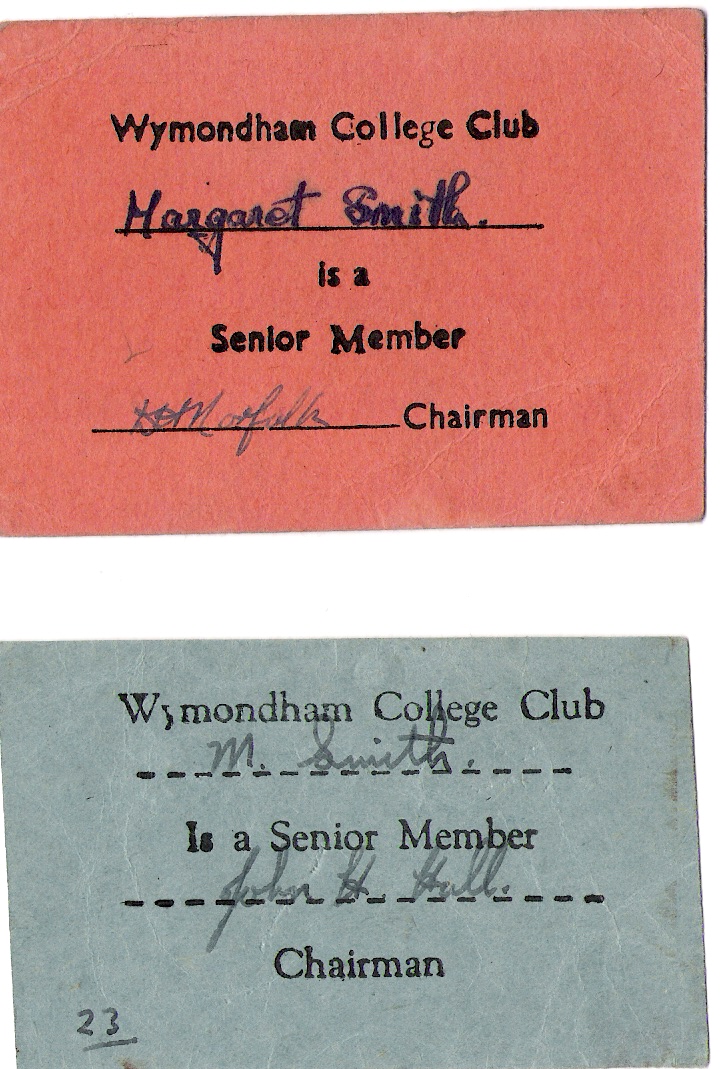 Wymondham College Club
Margaret Smith.
is a
Senior Member
H H Norfolk Chairman
Wymondham College Club
M. Smith.
Is a Senior Member
John H. Hall.
Chairman
23